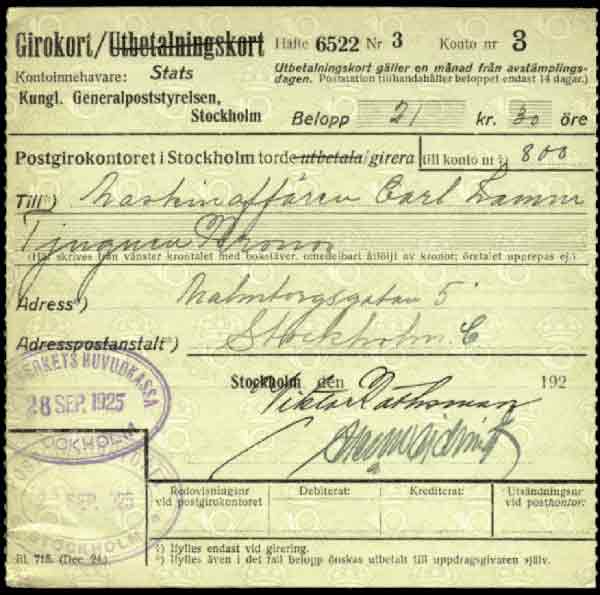 Girokort/Utbetalningskort Häfte 6522 Nr 3 Konto nr 3
Kontoinnehavare: Stats
Utbetalningskort gäller en månad från avstämplings-
dagen. Poststation tillhandahåller beloppet endast 14 dagar.)
Kungl. Generalpoststyrelsen,
Stockholm
Belopp 21 kr. 30 öre
Postgirokontoret i Stockholm torde utbetala/girera till konto nr ¹) 800
Till ²) Maskinaffären Carl Lamm
Tjuguen Kronor
(Här skrives från vänster krontalet med bokstäver, omedelbart åtföljt av kronor; öretalet upprepas ej.)
Adress ²) Malmtorgsgatan 5
Adresspostanstalt ²) Stockholm. C
Stockholm den 192
Viktor Rathsman
VERKETS HUVUDKASSA
28 SEP. 1925
STOCKHOLM
SEP. 25
STOCKHOLM
Redovisningsnr
vid postgirokontoret
Debiterat:
Krediterat:
Utsändningsnr
vid postkontor:
¹) Ifylles endast vid girering.
²) Ifylles även i det fall belopp önskas utbetalt till uppdragsgivaren själv.
Bl. 715. (Dec. 24.)